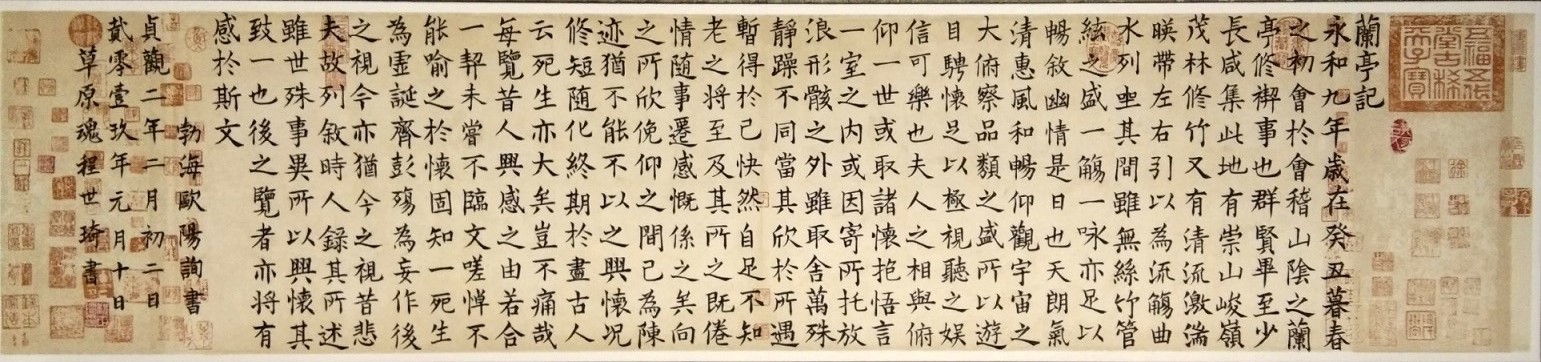 五福五代
堂古稀
天子寶
蘭亭記
永和九年歲在癸丑暮春
之初會於會稽山陰之蘭
亭修禊事也群賢畢至少
長咸集此地有崇山峻嶺
茂林修竹又有清流激湍
暎帶左右引以為流觴曲
水列坐其間雖無絲竹管
絃之盛一觴一咏亦足以
暢敘幽情是日也天朗氣
清惠風和暢仰觀宇宙之
大俯察品類之盛所以遊
目騁懷足以極視聽之娛
信可樂也夫人之相與俯
仰一世或取諸懷抱悟言
一室之內或因寄所托放
浪形骸之外雖取舍萬殊
靜躁不同當其欣於所遇
暫得於己快然自足不知
老之將至及其所之既倦
情隨事遷感慨係之矣向
之所欣俛仰之間已為陳
迹猶不能不以之興懷況
修短隨化終期於盡古人
云死生亦大矣豈不痛哉
每覽昔人興感之由若合
一契未嘗不臨文嗟悼不
能喻之於懷固知一死生
為虛誕齊彭殤為妄作後
之視今亦猶今之視昔悲
夫故列敘時人錄其所述
雖世殊事異所以興懷其
致一也後之覽者亦將有
感於斯文
勃海歐陽詢書
貞觀二年二月初二日
貳零壹玖年元月十日
草原魂程世琦書